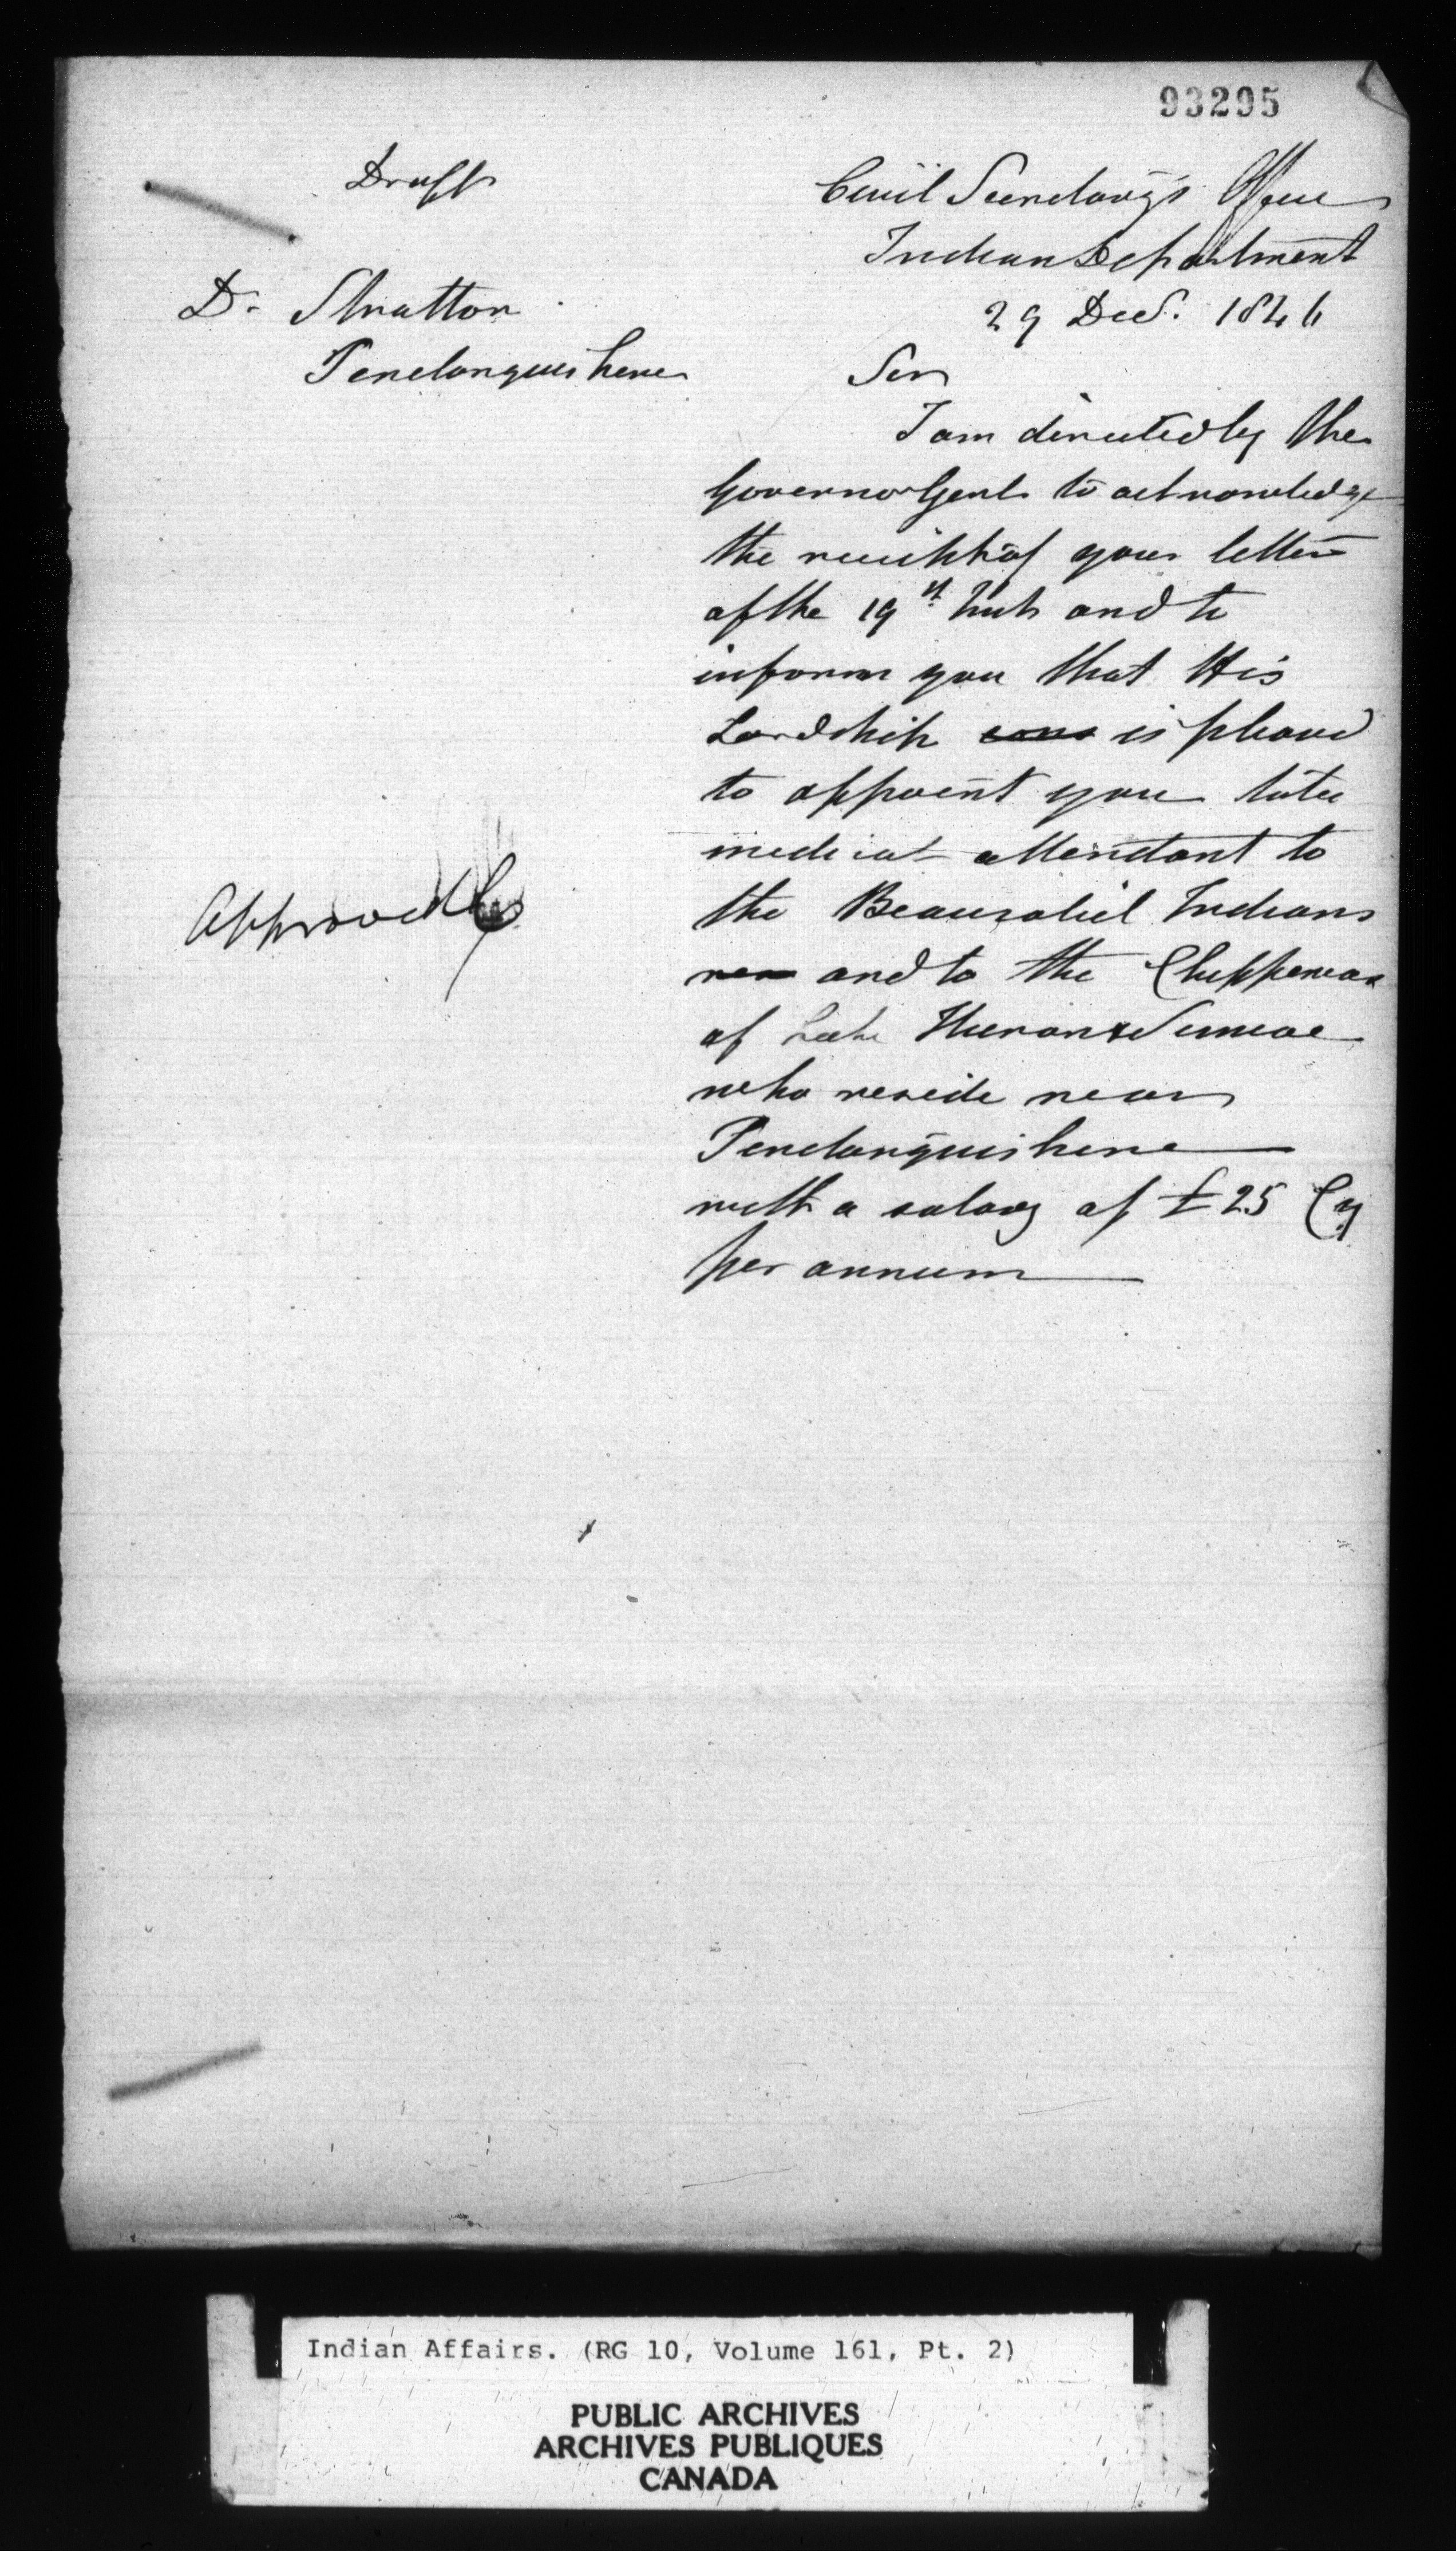 93295
Draft
Civil Secretary's Office
Indian Department
29 Dec. 1846
Dr Stratton
Penetanguishene
Sir
I am directed by the
Governor Genl to acknowledge
the receipt of your letter
of the 19th Inst and to
inform you that His
Lordship is pleased
to appoint you to be
medical attendant to
the Beausoliel Indians
and to the Chippewas
of Lake Huron & Simcoe
who reside near
Penetanguishene
with a salary of £25 Cy
per annum
Approved
Indian Affairs. (RG 10, Volume 161, Pt. 2)
PUBLIC ARCHIVES
ARCHIVES PUBLIQUES
CANADA